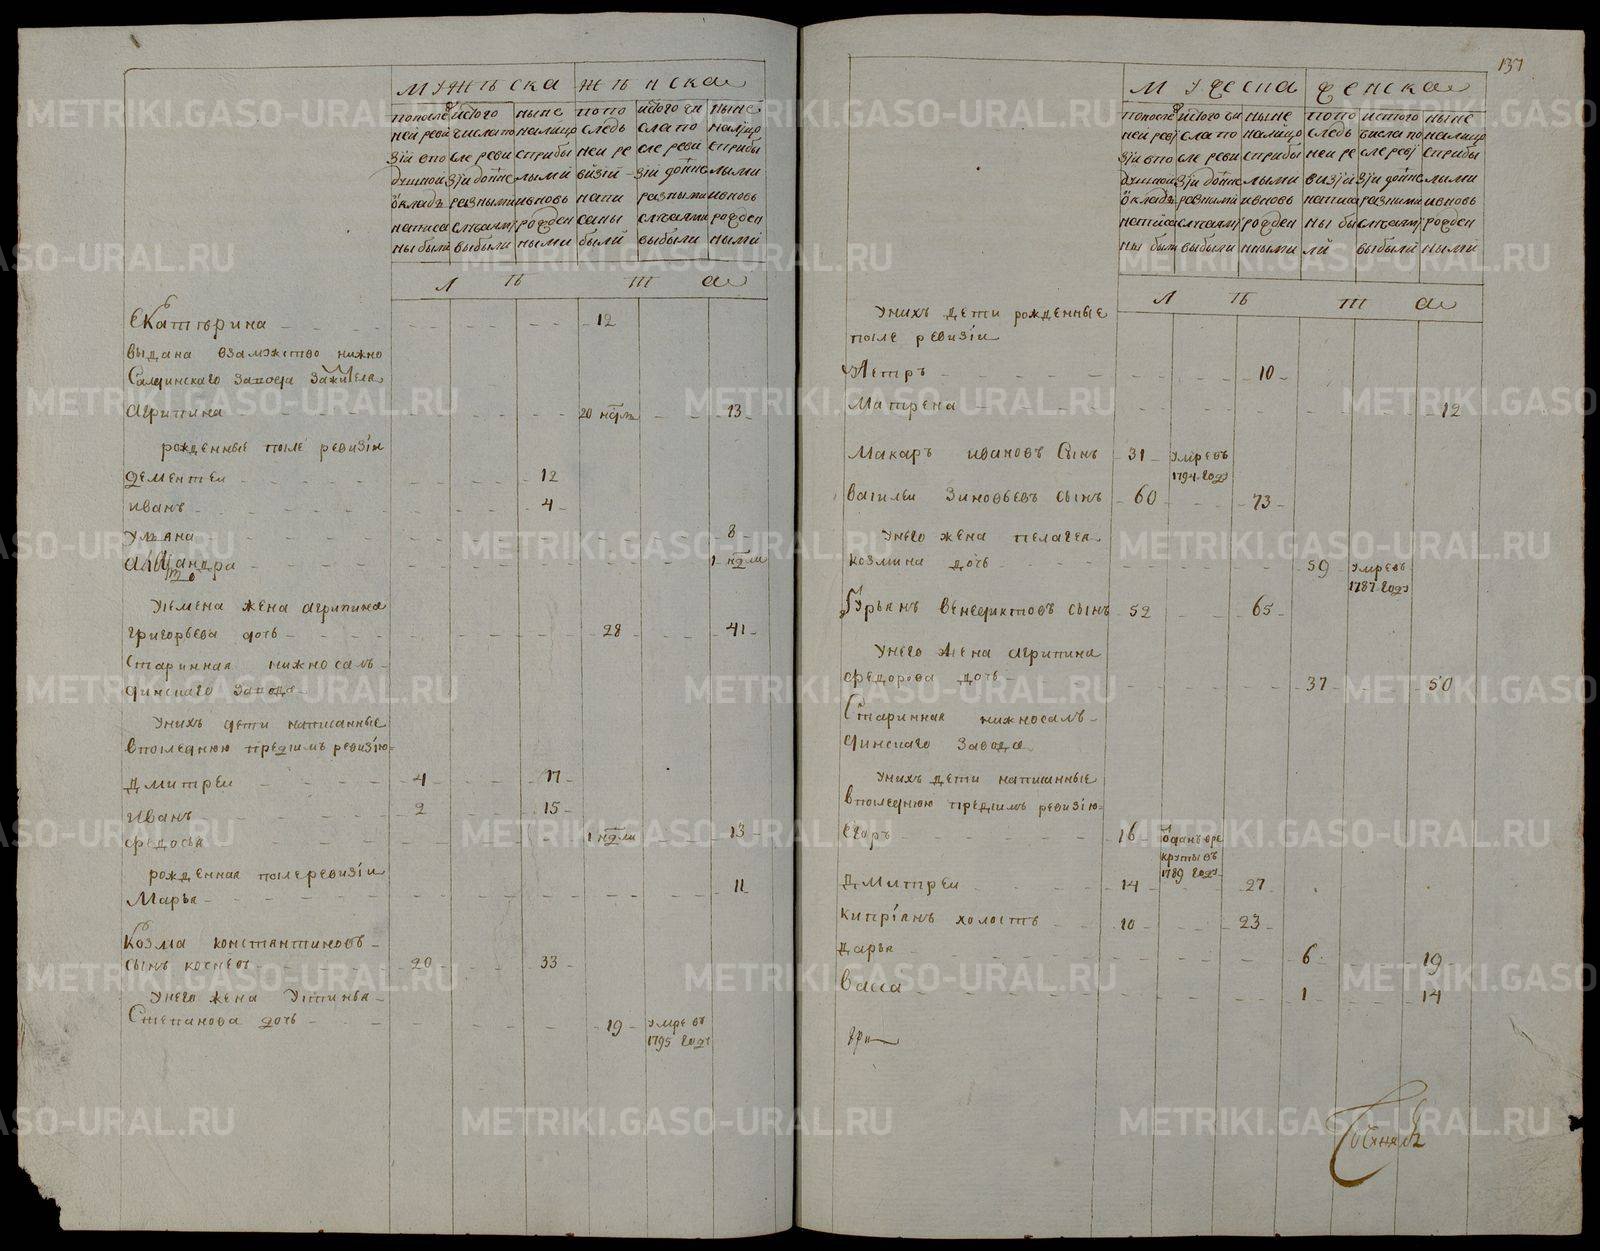 мужеска женска
попоследней ревизiи вподушной окладъ написаны были
изтого числа после ревизiи дойне разными случаями выбыли
ныне налицо сприбылыми ивновь рожденными
попоследней ревизiй написаны были
изтого числа после ревизiй дойне разными случаями выбыли
ныне налицо сприбылыми ивновь рожденными
лѣта
Екатерина 12
выдана взамужство нижно
Салдинскаго завода зажителя
агрипина 20 недѣль 13
рожденные после ревизiи
дементеи 12
иванъ 4
ульяна 8
александра 1 недели
Уемена жена агрипина
григорьева дочь 28 41
Старинная нижносал-
динскаго завода
Унихъ дети написанные
впоследнюю предсимъ ревизiю
дмитреи 4 17
Иванъ 2 15
федосья 1 недели 13
рожденная послеревизiи
Марья 11
Козма константиновъ
сынъ 20 33
Унего жена Устинья
Степанова дочь 19 умре въ
1795 году
137
мужеска женска
попоследней ревизiи вподушной окладъ написаны были
изтого числа после ревизiи дойне разными случаями выбыли
ныне налицо сприбылыми ивновь рожденными
попоследней ревизiи написаны были
изтого числа после ревизiи дойне разными случаями выбыли
ныне налицо сприбылыми ивновь рожденными
лѣта
Унихъ дети рожденные
после ревизiи
Петръ 10
Матрена 12
Макаръ ивановъ Сынъ 31 умре въ
1794 году
василеи Зиновьевъ сынъ 60 73
Унего жена пелагея
козмина дочь 59 умре въ
1787 году
Гурьянъ венедиктовъ сынъ 52 65
Унего жена агрипина
федорова дочь 37 50
Старинная нижносал-
динскаго завода
Унихъ дети написанные
впоследнюю предсимъ ревизiю
Егоръ 16 отданъ вре
круты въ
1789 году
дмитреи 14 27
киприянъ холостъ 10 23
дарья 6 19
васса 1 14
METRIKI.GASO-URAL.RU